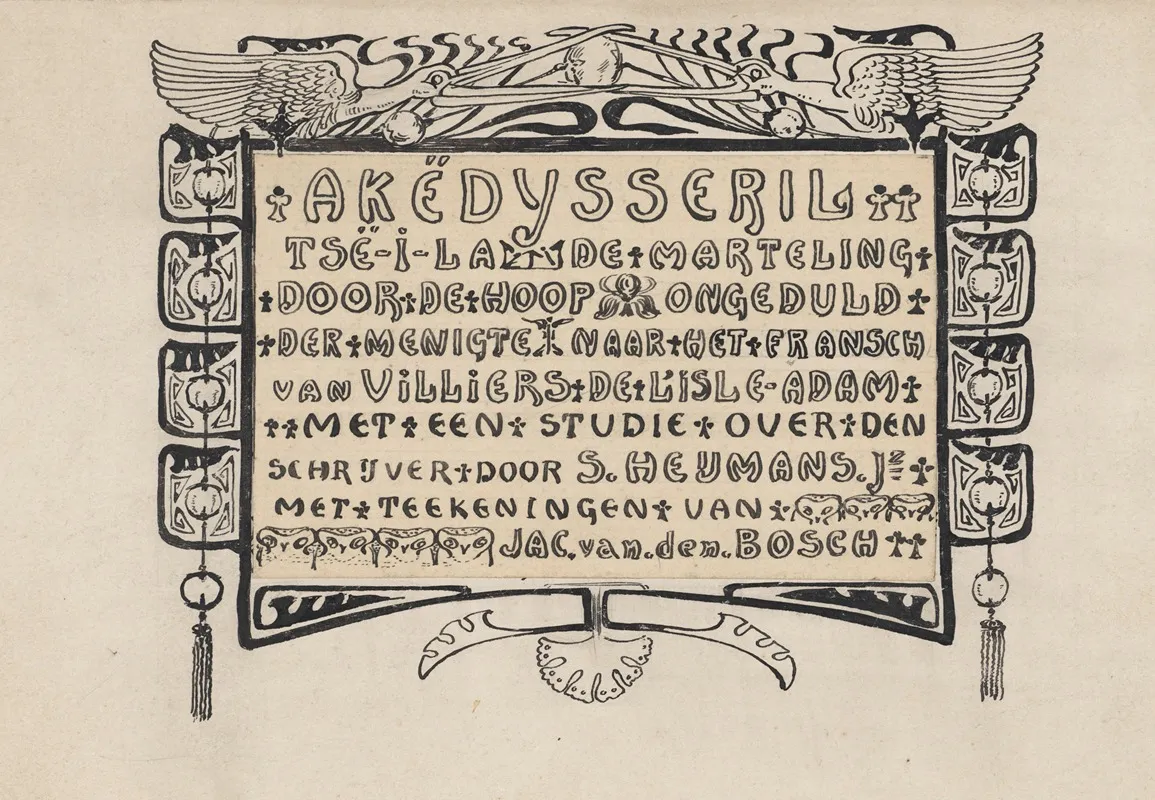 AKËDYSSERIL
TSË-Ï-LA DE MARTELING
DOOR DE HOOP ONGEDULD
DER MENIGTE NAAR HET FRANSCH
VAN VILLIERS DE L'ISLE-ADAM
MET EEN STUDIE OVER DEN
SCHRIJVER DOOR S. HEIJMANS. Jz
MET TEEKENINGEN VAN
JAC. van. den. BOSCH